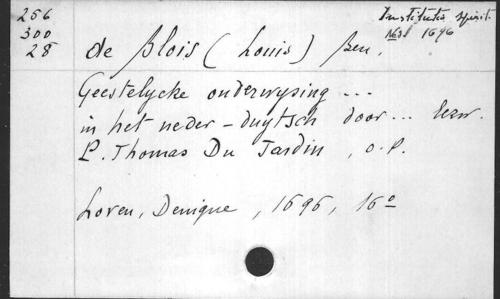 256
300
28
Institutio spirit.
1696
de Blois (Louis) Ben.
Geestelycke onderwysing ...
in het neder-duytsch door ... Eerw.
P. Thomas Du Jardin, O.P.
Loven, Denique, 1696, 16º